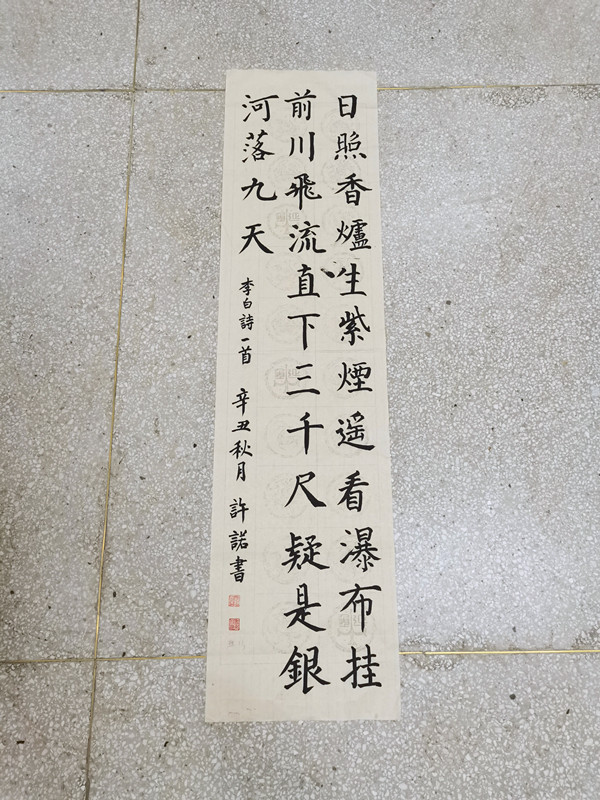 日照香爐生紫煙遥看瀑布挂
前川飛流直下三千尺疑是銀
河落九天
李白詩一首 辛丑秋月 許諾書